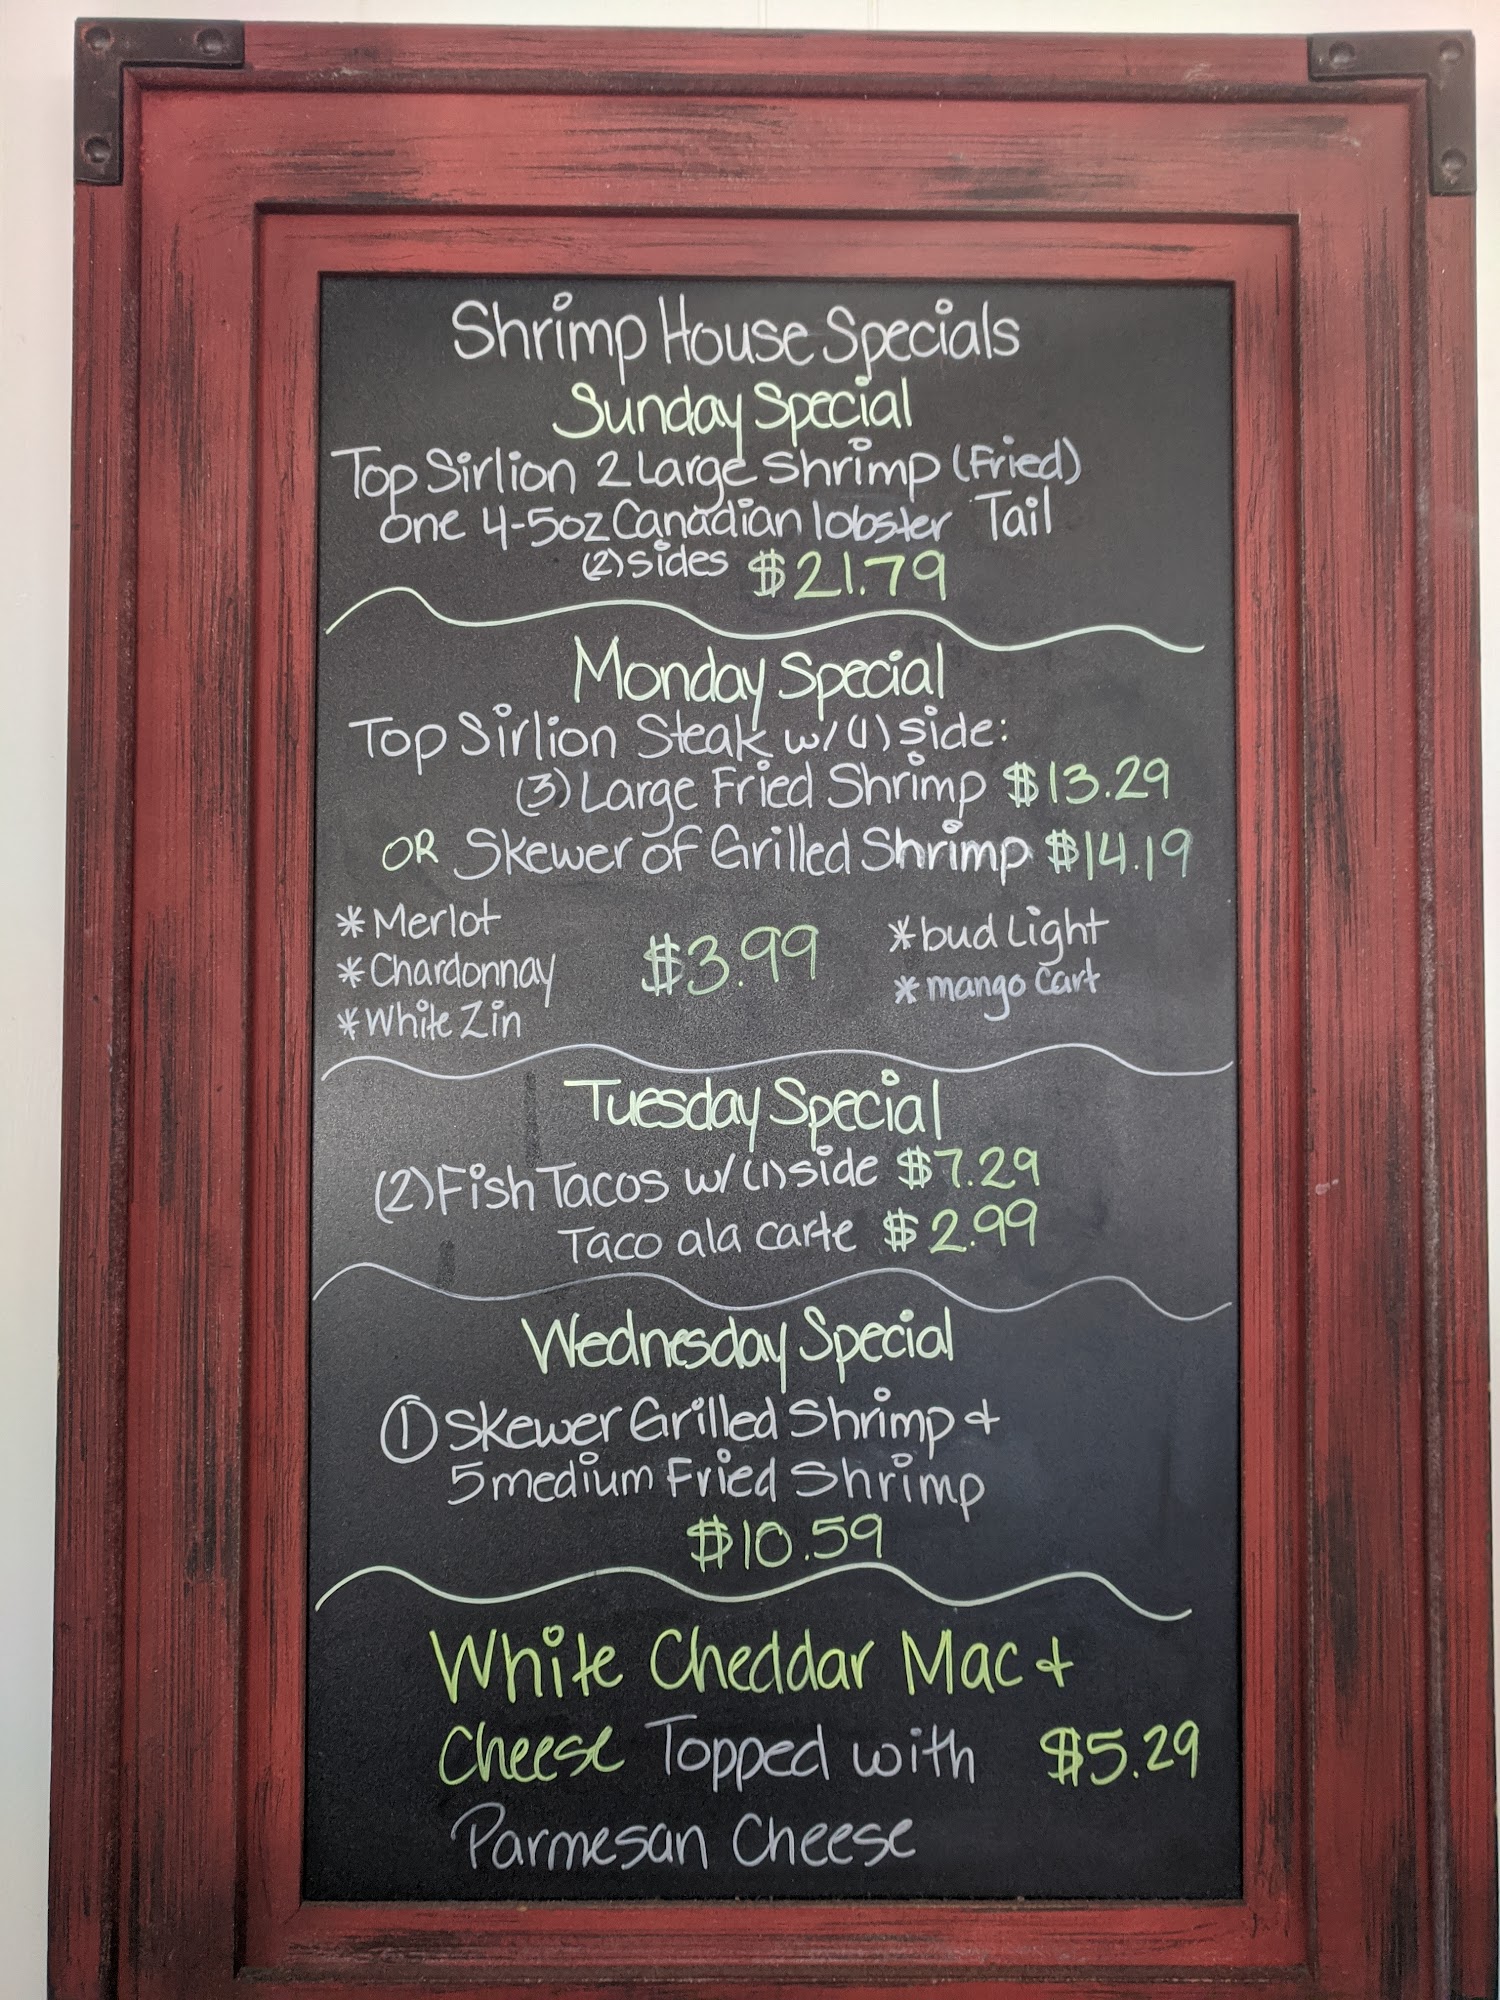 Shrimp House Specials
Sunday Special
Top Sirlion 2 Large Shrimp (Fried)
one 4-5oz Canadian lobster Tail
(2) sides $21.79
Monday Special
Top Sirlion Steak w/ (1) side:
(3) Large Fried Shrimp $13.29
OR Skewer of Grilled Shrimp $14.19
* Merlot
* Chardonnay
* White Zin
$3.99
* bud Light
* mango Cart
Tuesday Special
(2) Fish Tacos w/ (1) side $7.29
Taco ala carte $2.99
Wednesday Special
① Skewer Grilled Shrimp &
5 medium Fried Shrimp
$10.59
White Cheddar Mac &
Cheese Topped with $5.29
Parmesan Cheese